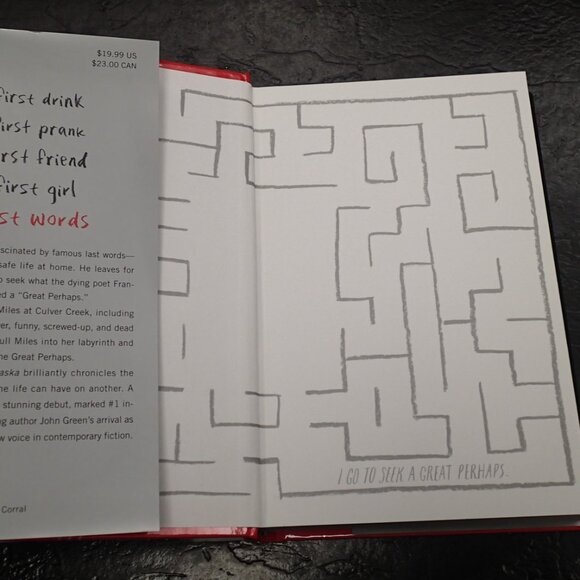 $19.99 US
$23.00 CAN
first drink
first prank
first friend
first girl
st words
ascinated by famous last words—
safe life at home. He leaves for
o seek what the dying poet Fran-
ed a “Great Perhaps.”
Miles at Culver Creek, including
er, funny, screwed-up, and dead
ull Miles into her labyrinth and
he Great Perhaps.
aska brilliantly chronicles the
ne life can have on another. A
stunning debut, marked #1 in-
ng author John Green’s arrival as
w voice in contemporary fiction.
Corral
I GO TO SEEK A GREAT PERHAPS.